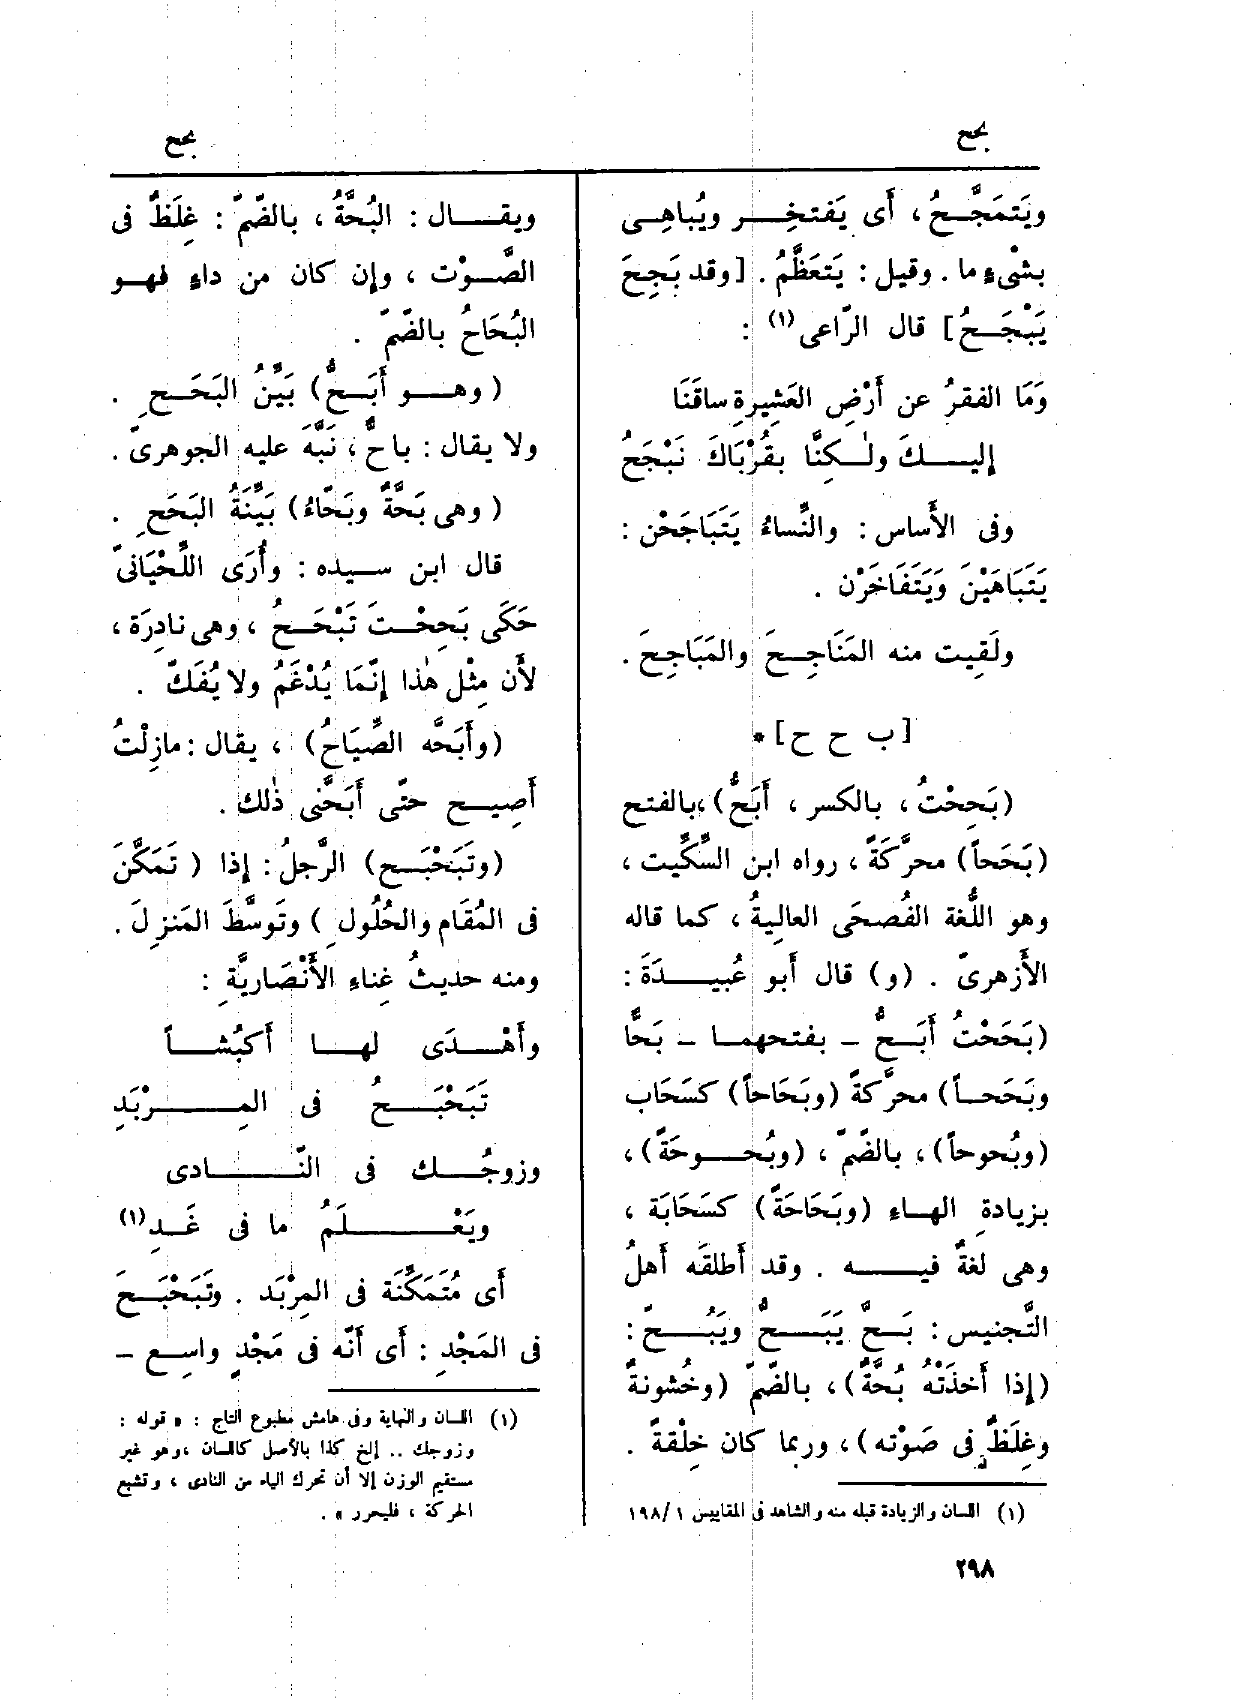 بحح
بحح
ويَتمَجَّحُ، أَى يَفتخِر ويُباهِى
بشىْءٍ ما . وقيل : يَتعَظَّمُ . [وقد بَجِحَ
يَبْجَحُ] قال الرّاعى (١) :
وَمَا الفقرُ عن أَرْضِ العَشِيرةِ ساقَنَا
إليكَ ولٰكِنَّا بقُرْبَاكَ نَبْجَحُ
وفى الأَساس : والنِّساءُ يَتَبَاجَحْن :
يَتَبَاهَيْنَ وَيَتَفَاخَرْن .
ولَقِيت منه المَنَاجِحَ والمَبَاجِحَ .
[ب ح ح] *
(بَحِحْتُ، بالكسر ، أَبَحُّ)،بالفتح
(بَحَحاً) محرَّكَةً ، رواه ابن السِّكِّيت ،
وهو اللُّغة الفُصحَى العالِيةُ ، كما قاله
الأَزهرىّ . (و) قال أَبو عُبيدَةَ :
(بَحَحْتُ أَبَحُّ – بفتحهما – بَحًّا
وبَحَحاً) محرَّكةً (وبَحَاحاً) كسَحَاب
(وبُحوحاً)، بالضّمّ ، (وبُحوحَةً)،
بزيادةِ الهاءِ (وبَحَاحَةً) كسَحَابَة ،
وهى لغةٌ فيه . وقد أَطلقَه أَهلُ
التَّجنيس : بَحَّ يَبَحُّ ويَبُحّ :
(إذا أَخذَتْه بُحَّةٌ)، بالضّمّ (وخُشونةٌ
وغِلَظٌ فى صَوْته)، وربما كان خِلْقةً .
(١) اللسان والزيادة قبله منه والشاهد فى المقاييس ١٩٨/١
ويقال : البُحَّةُ ، بالضّمّ : غِلَظٌ فى
الصَّوْت ، وإن كان من داءٍ فهو
البُحَاحُ بالضّمّ .
(وهو أَبَحُّ) بَيِّنُ البَحَحِ .
ولا يقال : باحٌّ ، نَبَّهَ عليه الجوهرىّ .
(وهى بَحَّةٌ وبَحّاءُ) بَيِّنَةُ البَحَحِ .
قال ابن سيده : وأُرَى اللِّحْيَانىّ
حَكَى بَحِحْتَ تَبْحَحُ ، وهى نادِرَة ،
لأَن مِثْل هٰذا إنّمَا يُدْغَمُ ولا يُفَكّ .
(وأَبَحَّه الصِّيَاحُ) ، يقال : مازِلْتُ
أَصِيح حتّى أَبَحَّنى ذٰلك .
(وتَبَحْبَح) الرَّجلُ : إذا ( تَمَكَّنَ
فى المُقَام والحُلُولِ ) وتَوسَّطَ المَنزِلَ .
ومنه حديثُ غِناءِ الأَنْصَاريَّةِ :
وأَهْدَى لها أَكبُشاً
تَبَحْبَحُ فى المِرْبَدِ
وزوجُك فى النَّادى
ويَعْلَمُ ما فى غَدِ (١)
أَى مُتَمَكِّنَة فى المِرْبَد . وتَبَحْبَحَ
فى المَجْدِ : أَى أَنّه فى مَجْدٍ واسِع –
(١) اللسان والنهاية وفى هامش مطبوع التاج : « قوله :
وزوجك .. إلخ كذا بالأصل كاللسان ،وهو غير
مستقيم الوزن إلا أن تحرك الياء من النادى ، وتشبع
الحركة ، فليحرر » .
٢٩٨